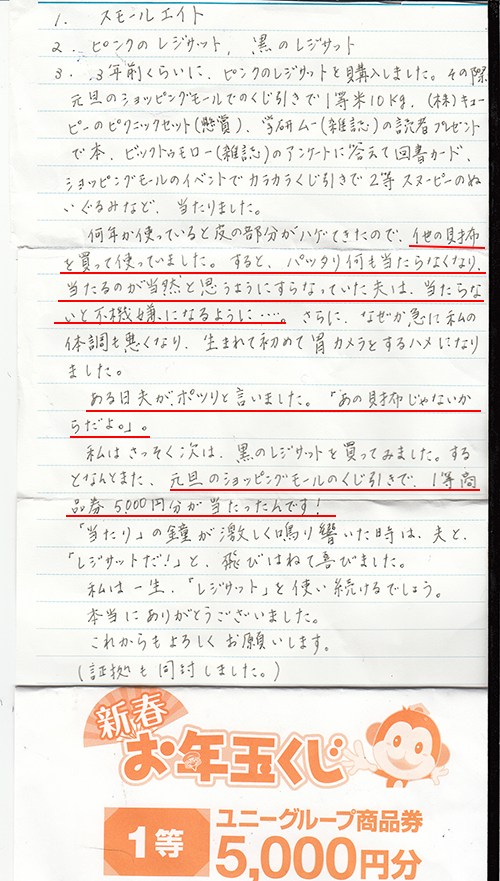 1. スモールエイト
2. ピンクのレジサット, 黒のレジサット
3. 3年前くらいに、ピンクのレジサットを購入しました。その際
元旦のショッピングモールでのくじ引きで1等米10Kg、(株)キュー
ピーのピクニックセット(懸賞)、学研ムー(雑誌)の読者プレゼント
で本、ビックトゥモロー(雑誌)のアンケートに答えて図書カード、
ショッピングモールのイベントでカラカラくじ引きで2等スヌーピーのぬ
いぐるみなど、当たりました。
何年か使っていると皮の部分がハゲてきたので、他の財布
を買って使っていました。すると、パッタリ何も当たらなくなり、
当たるのが当然と思うようにすらなっていた夫は、当たらな
いと不機嫌になるように…。さらに、なぜか急に私の
体調も悪くなり、生まれて初めて胃カメラをするハメになり
ました。
ある日夫が、ポツリと言いました。「あの財布じゃないか
らだよ。」。
私はさっそく次は、黒のレジサットを買ってみました。する
となんとまた、元旦のショッピングモールのくじ引きで、1等商
品券5000円分が当たったんです!
「当たり」の鐘が激しく鳴り響いた時は、夫と、
「レジサットだ!」と、飛びはねて喜びました。
私は一生、「レジサット」を使い続けるでしょう。
本当にありがとうございました。
これからもよろしくお願いします。
(証拠も同封しました。)
新春
お年玉くじ
1等
ユニーグループ商品券
5,000円分